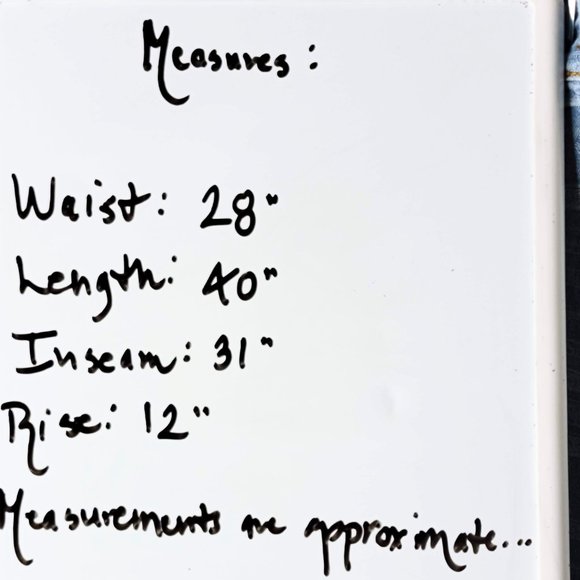 Measures:
Waist: 28"
Length: 40"
Inseam: 31"
Rise: 12"
Measurements are approximate...